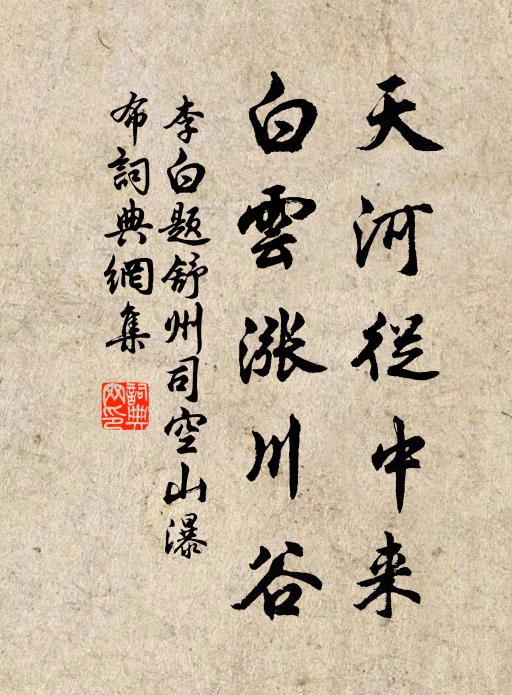 天河從中来
白雲漲川谷
李白題舒州司空山瀑
布詞典網集
詞典
网印